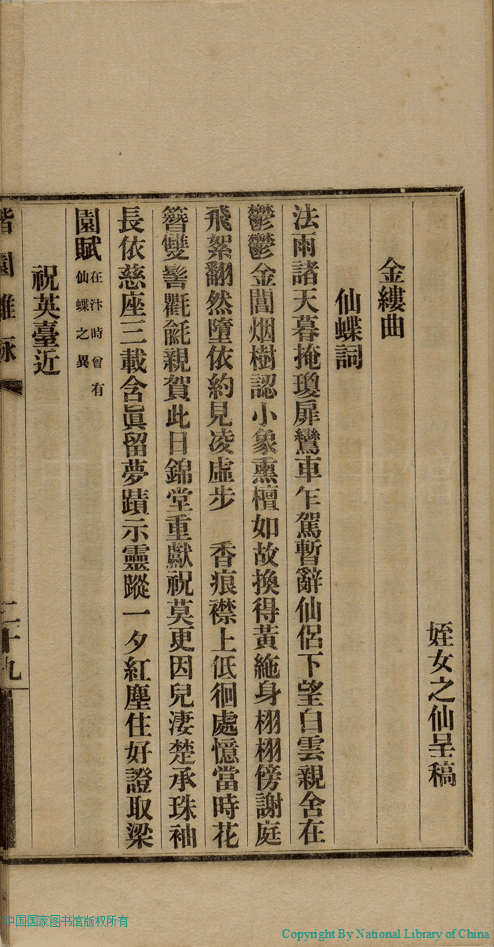 姪女之仙呈稿
金縷曲
仙蝶詞
法雨諸天暮掩瓊扉鸞車乍駕暫辭仙侶下望白雲親舍在
鬱鬱金閶烟樹認小象熏檀如故換得黃絁身栩栩傍謝庭
飛絮翻然墮依約見凌虛步　香痕襟上低徊處憶當時花
簪雙髻氍毹親賀此日錦堂重獻祝莫更因兒淒楚承珠袖
長依慈座三載含眞留夢蹟示靈蹤一夕紅塵住好證取梁
園賦在汴時曾有仙蝶之異
祝英臺近
園雜詠
二十九
中国国家图书馆版权所有
Copyright By National Library of China